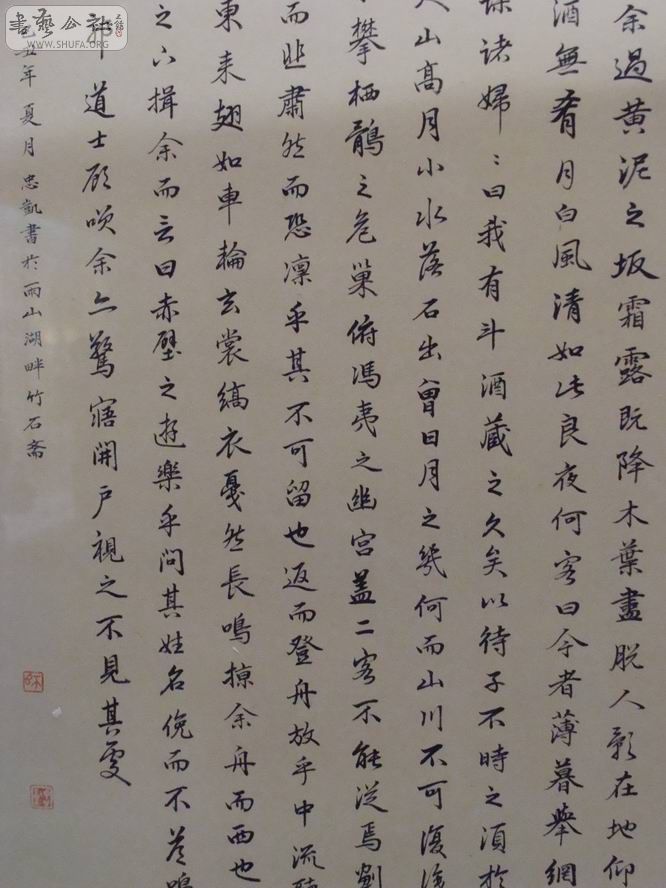 余過黃泥之坂霜露既降木葉盡脫人影在地仰
酒無肴月白風清如此良夜何客曰今者薄暮舉網
諸婦:曰我有斗酒藏之久矣以待子不時之須於
山高月小水落石出曾日月之幾何而山川不可復
攀栖鶻之危巢俯馮夷之幽宮蓋二客不能從焉劃
而悲肅然而恐凜乎其不可留也返而登舟放乎中流
東来翅如車輪玄裳縞衣戛然長鳴掠余舟而西也
之下揖余而言曰赤壁之遊樂乎問其姓名俛而不答
道士顧笑余亦驚寤開戶視之不見其處
己丑年夏月忠凱書於雨山湖畔竹石斋
書藝公社
WWW.SHUFA.ORG